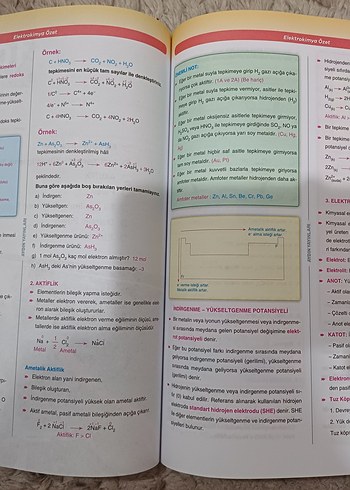 Elektrokimya Özet
Örnek:
C + HNO₃ → CO₂ + NO₂ + H₂O
tepkimesini en küçük tam sayılar ile denkleştirme.
C + HNO₃ → CO₂ + NO₂ + H₂O
1/C⁰ → C⁴⁺ + 4e⁻
4/e⁻ + N⁵⁺ → N⁴⁺
C + 4HNO₃ → CO₂ + 4NO₂ + 2H₂O
Örnek:
Zn + As₂O₃ → Zn²⁺ + AsH₃
tepkimesinin denkleştirilmiş hâli
12H⁺ + 6Zn + As₂O₃ → 6Zn²⁺ + 2AsH₃ + 3H₂O
şeklindedir.
Buna göre aşağıda boş bırakılan yerleri tamamlayınız.
a) İndirgen: Zn
b) Yükseltgen: As₂O₃
c) Yükseltgenen: Zn
d) İndirgenen: As₂O₃
e) Yükseltgenme ürünü: Zn²⁺
f) İndirgenme ürünü: AsH₃
g) 1 mol As₂O₃ kaç mol elektron almıştır? 12 mol
h) AsH₃ deki As'nin yükseltgenme basamağı: -3
2. AKTİFLİK
Elementlerin bileşik yapma isteğidir.
Metaller elektron vererek, ametaller ise genellikle elektron alarak bileşik oluştururlar.
Metallerde aktiflik elektron verme eğiliminin ölçüsü, ametallerde ise aktiflik elektron alma eğiliminin ölçüsüdür.
Na + 1/2 Cl₂ → NaCl
Metal Ametal
Ametalik Aktiflik
Elektron alan yani indirgenen,
Bileşik oluşturan,
İndirgenme potansiyeli yüksek olan ametal aktiftir.
Aktif ametal, pasif ametali bileşiğinden açığa çıkarır.
F₂ + 2 NaCl → 2NaF + Cl₂
Aktiflik: F > Cl
AYDIN YAYINLARI
Elektrokimya Özet
ÖNEMLİ NOT:
Eğer bir metal suyla tepkimeye girip H₂ gazı açığa çıkarırsa çok aktiftir. (1A ve 2A) (Be hariç)
Eğer bir metal suyla tepkime vermiyor, asitler ile tepkimeye girip H₂ gazı açığa çıkarıyorsa hidrojenden (H₂) aktiftir.
Eğer bir metal oksijensiz asitlerle tepkimeye girmiyor, H₂SO₄ veya HNO₃ ile tepkimeye girdiğinde SO₂, NO ya da NO₂ gazı açığa çıkarıyorsa yarı soy metaldir. (Cu, Hg, Ag)
Eğer bir metal hiçbir saf asitle tepkimeye girmiyorsa tam soy metaldir. (Au, Pt)
Eğer bir metal kuvvetli bazlarla tepkimeye giriyorsa amfoterdir. Amfoter metaller hidrojenden daha aktiftir.
Amfoter metaller: Zn, Al, Sn, Be, Cr, Pb, Ga
Ametalik aktiflik artar.
e⁻ alma isteği artar.
e⁻ verme isteği artar.
Metalik aktiflik artar.
İNDİRGENME – YÜKSELTGENME POTANSİYELİ
Bir metalin veya iyonun yükseltgenmesi veya indirgenmesi sırasında meydana gelen potansiyel değişimine elektrot potansiyeli denir.
Eğer bu potansiyel farkı indirgenme sırasında meydana geliyorsa indirgenme potansiyeli (gerilimi), yükseltgenme sırasında meydana geliyorsa yükseltgenme potansiyeli (gerilimi) denir.
Hidrojenin yükseltgenme veya indirgenme potansiyeli sıfır (0) kabul edilir. Referans alınarak kullanılan hidrojen elektroduna standart hidrojen elektrodu (SHE) denir. SHE ile diğer elementlerin yükseltgenme ve indirgenme potansiyelleri bulunur.
AYDIN YAYINLARI
3. ELEKTR
Kimyasal
ANOT:
KATOT:
Tuz Köp
1. Devre
2. Yük d